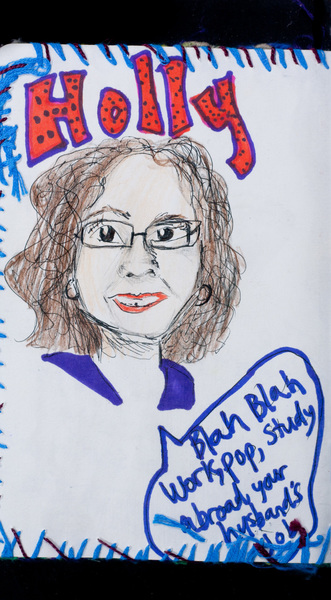 Holly
Blah Blah
Workspop, Study
abroad, your
husband's